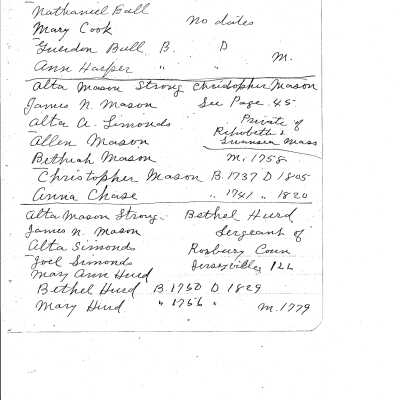 Nathaniel Ball
Mary Cook no dates
Guerdon Bull B. D
Ann Harper " " M.
Alta Mason Strong Christopher Mason
James N Mason See Page 45
Alta A. Simonds Private of
Allen Mason Rehobeth & Swansea Mass
Bethiah Mason M. 1758
Christopher Mason B. 1737 D 1805
Anna Chase " 1741 " 1820
Alta Mason Strong. Bethel Hurd
James N. Mason Sergeant of
Alta Simonds Roxbury Conn
Joel Simonds Jerseyville, Ill
Mary Ann Hurd
Bethel Hurd B. 1750 D 1829
Mary Hurd " 1756 " M. 1779